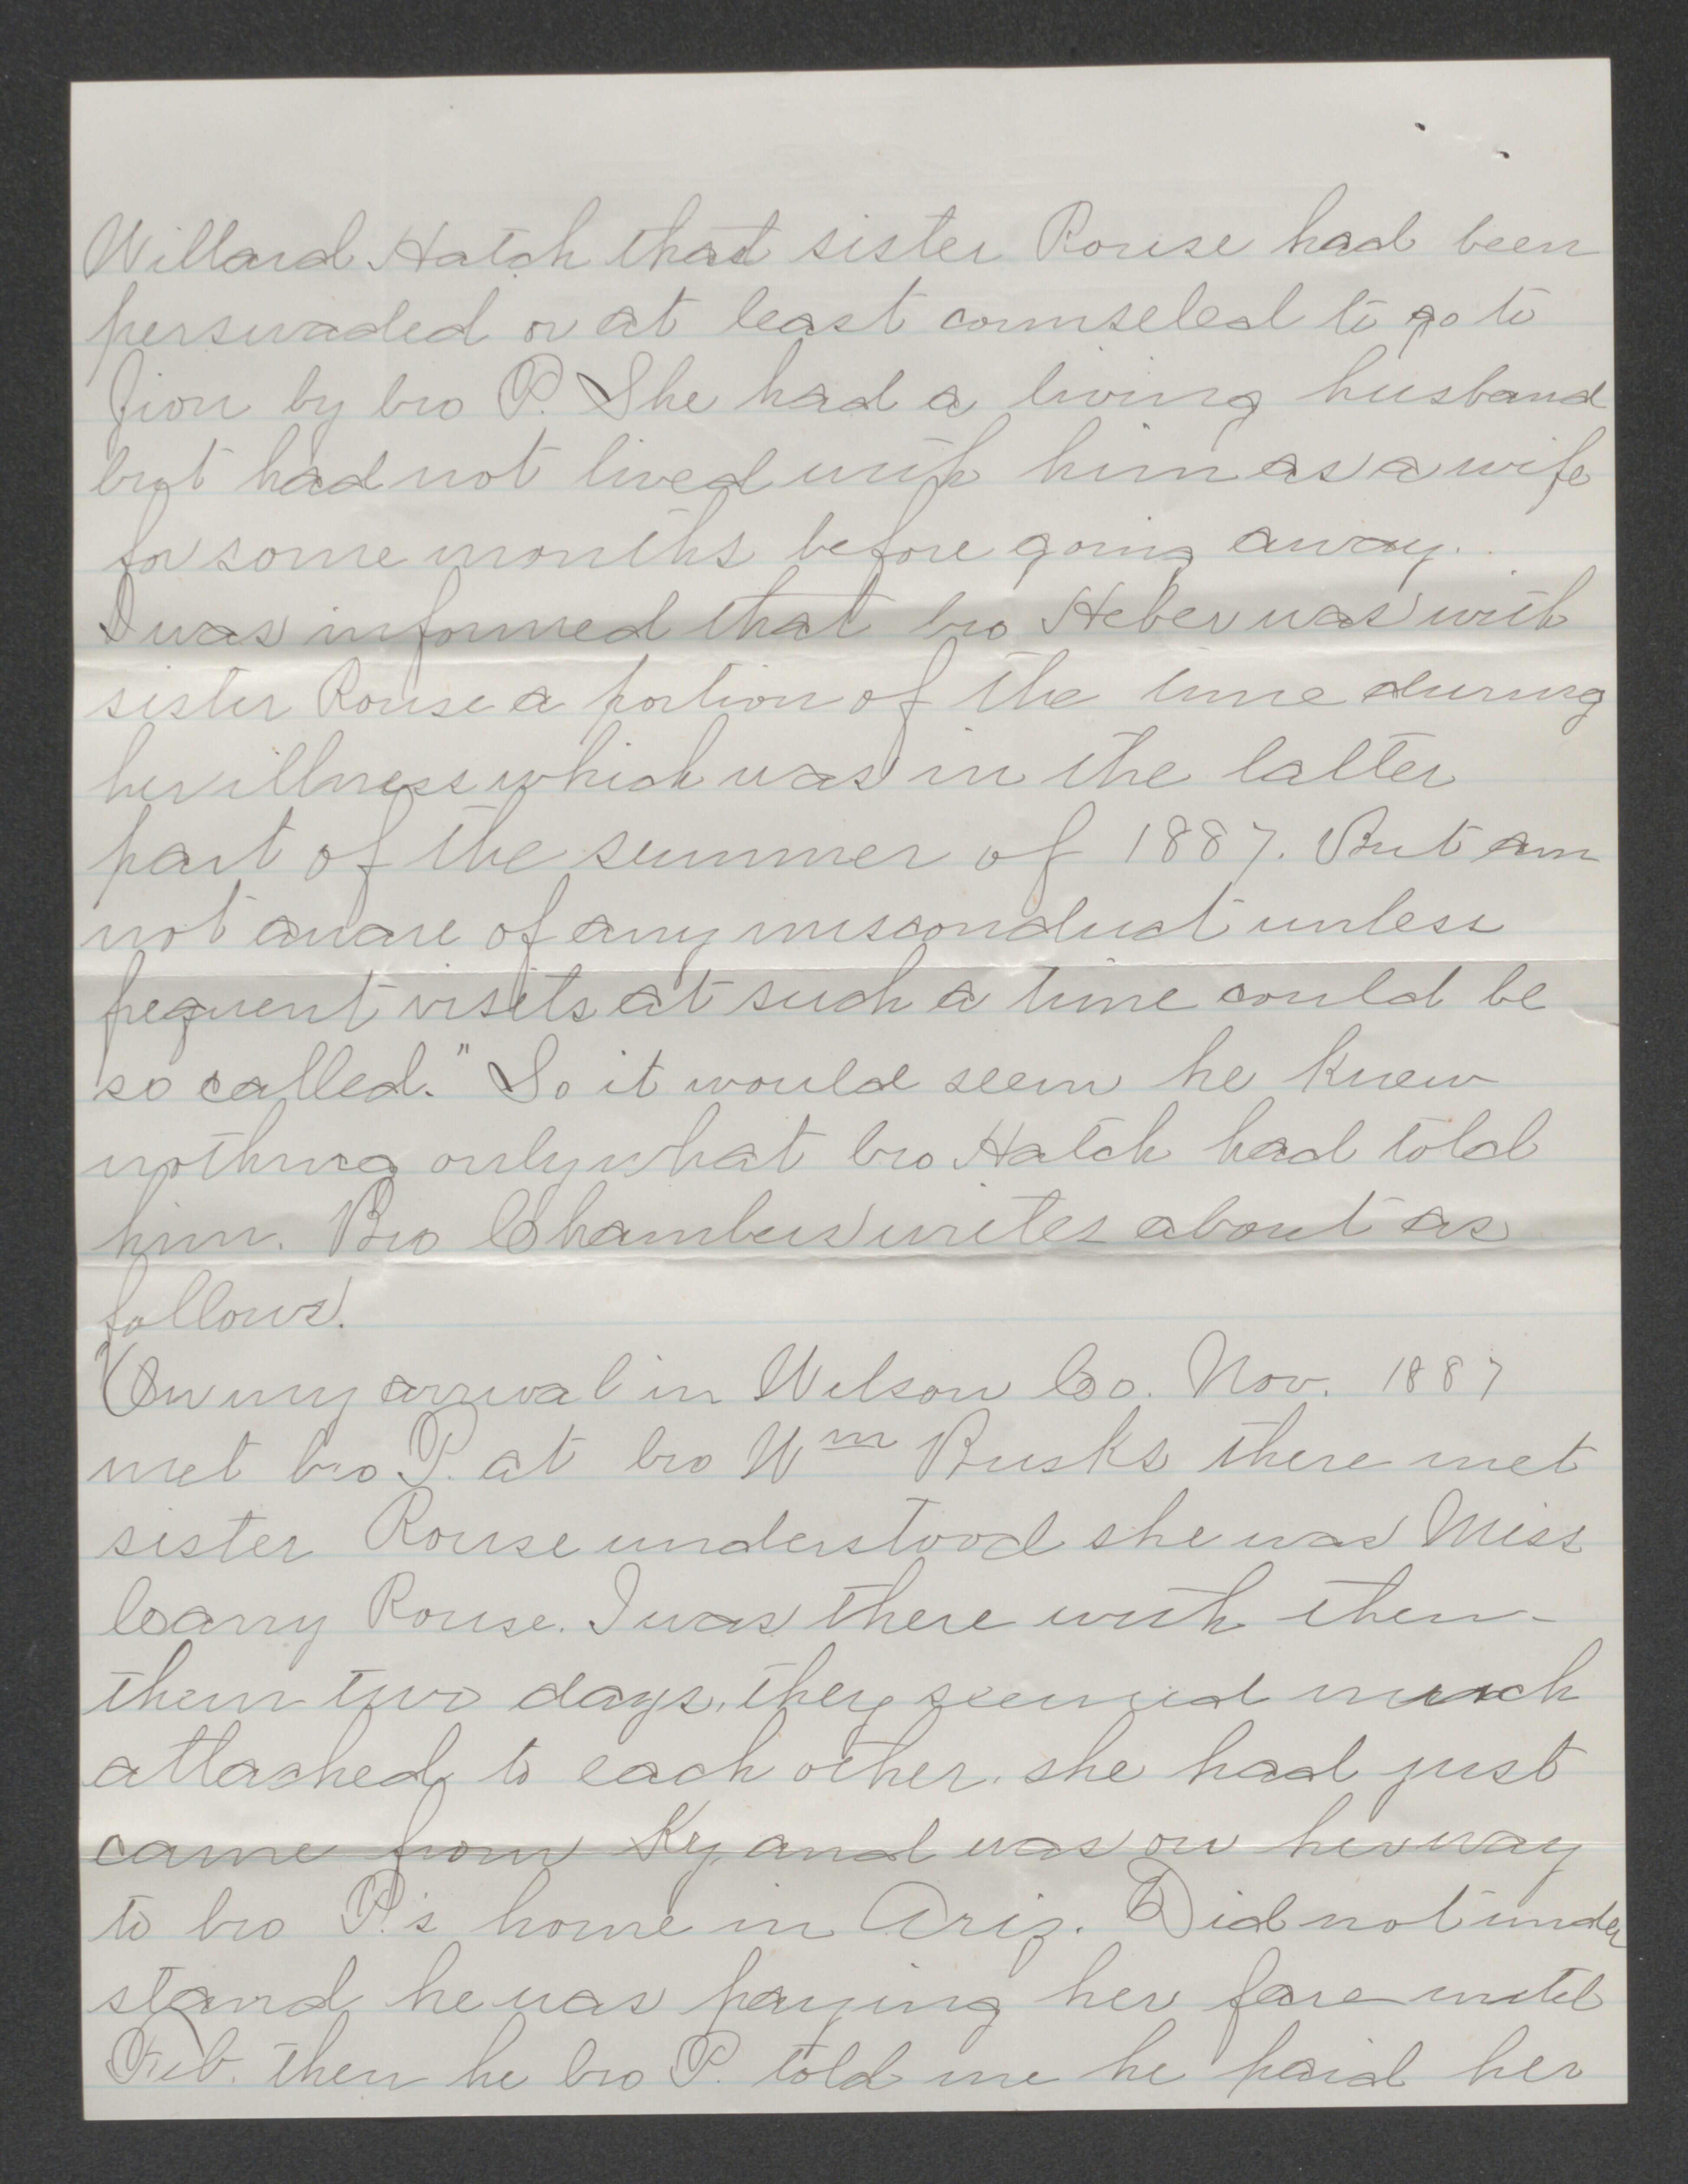 Willard Hatch that sister Rouse had been
persuaded or at least counseled to go to
Zion by bro P. She had a living husband
but had not lived with him as a wife
for some months before going away.
I was informed that bro Heber was with
sister Rouse a portion of the time during
her illness which was in the latter
part of the summer of 1887. But am
not aware of any misconduct unless
frequent visits at such a time could be
so called." So it would seem he knew
nothing only what bro Hatch had told
him. Bro Chambers writes about as
follows.
"On my arrival in Wilson Co. Nov. 1887
met bro P. at bro Wm Rusks there met
sister Rouse understood she was Miss
Carry Rouse. I was there with them
them two days, they seemed much
attached to each other. she had just
came from Ky and was on her way
to bro P.'s home in Ariz. Did not under
stand he was paying her fare until
Feb. then he bro P. told me he paid her